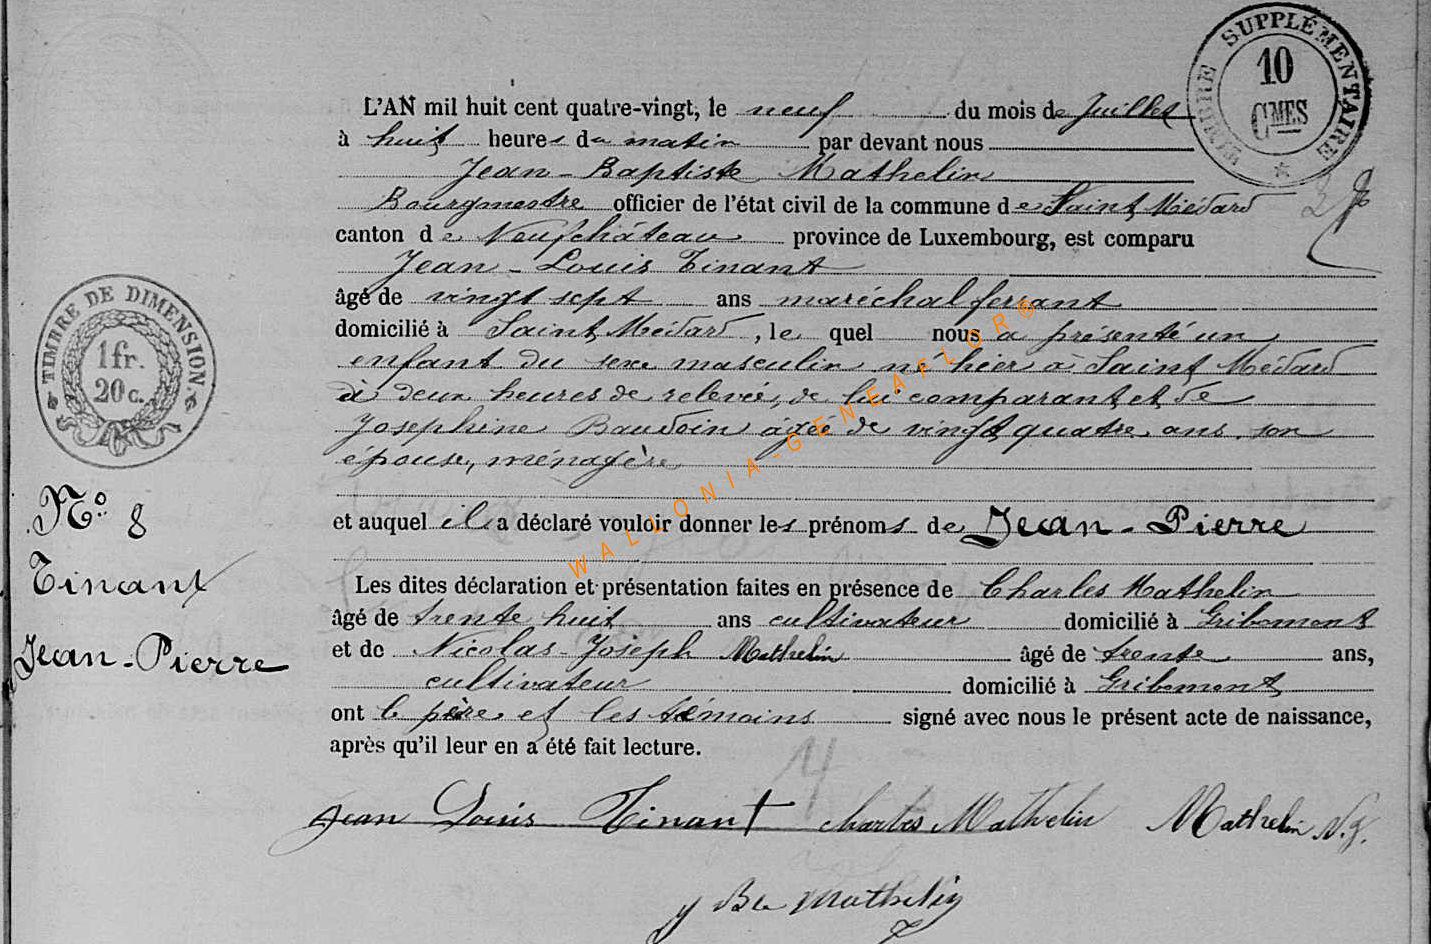 TIMBRE SUPPLÉMENTAIRE
10
CMES
L'AN mil huit cent quatre-vingt, le neuf du mois de Juillet
à huit heures du matin par devant nous
Jean-Baptiste Mathelin
Bourgmestre officier de l'état civil de la commune de Saint Médard
canton de Neufchâteau province de Luxembourg, est comparu
Jean-Louis Tinant
âgé de vingt sept ans maréchal ferrant
domicilié à Saint Médard, le quel nous a présenté un
enfant du sexe masculin né hier à Saint Médard
à deux heures de relevée, de lui comparant, et de
Josephine Baudoin âgée de vingt quatre ans son
épouse, ménagère
et auquel il a déclaré vouloir donner les prénoms de Jean-Pierre
Les dites déclaration et présentation faites en présence de Charles Mathelin
âgé de trente huit ans cultivateur domicilié à Gribomont
et de Nicolas-Joseph Mathelin âgé de trente ans,
cultivateur domicilié à Gribomont
ont le père et les témoins signé avec nous le présent acte de naissance,
après qu'il leur en a été fait lecture.
Jean Louis Tinant Charles Mathelin Mathelin N.J.
J Bte Mathelin
TIMBRE DE DIMENSION
1 fr.
20 c.
N° 8
Tinant
Jean-Pierre
WALLONIA-GENEAFLOR®